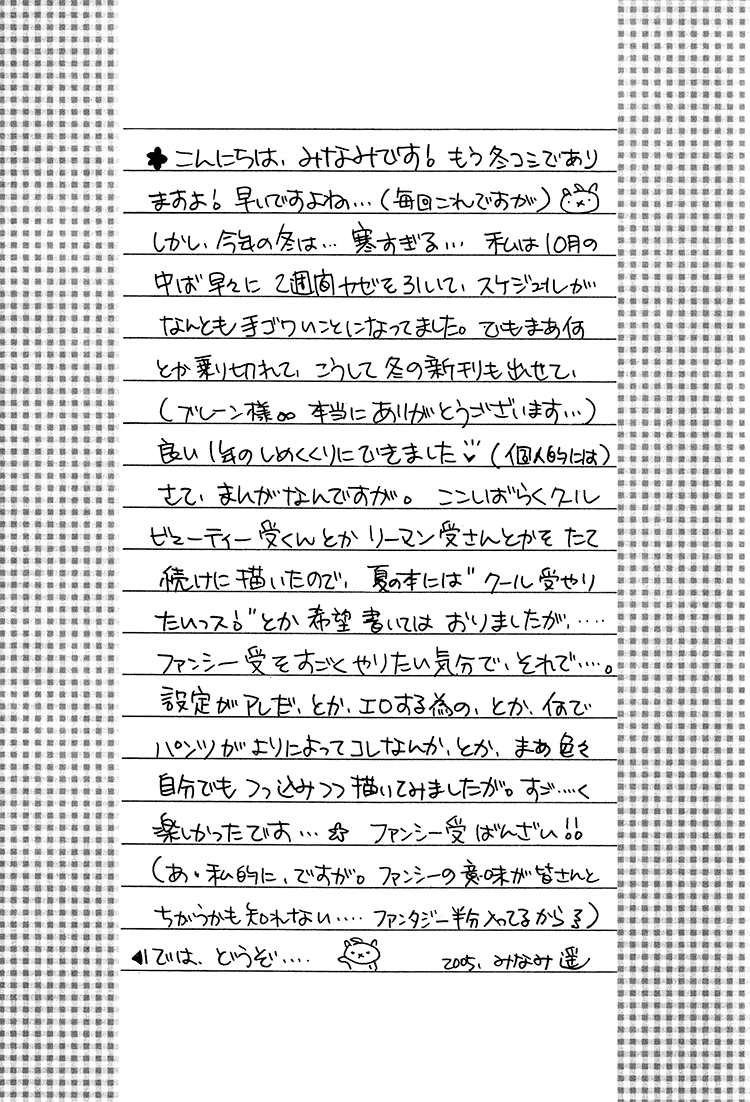 ✽ こんにちは、みなみです! もう冬コミであり
ますよ! 早いですよね…(毎回これですが)
しかし、今年の冬は… 寒すぎる… 私は10月の
中ば早々に 2週間カゼを引いて、スケジュールが
なんとも手ゴワいことになってました。でもまあ何
とか乗り切れて、こうして冬の新刊も出せて、
(ブレーン様∞ 本当にありがとうございます…)
良い1年のしめくくりにできました♡(個人的には)
さて、まんがなんですが。 ここしばらくクール
ビューティー受くんとか リーマン受さんとかを たて
続けに描いたので、夏の本には"クール受やり
たいっス!"とか希望書いては おりましたが、‥‥
ファンシー受をすごくやりたい気分で、それで‥‥。
設定がアレだ、とか、エロする為の、とか、何で
パンツがよりによってコレなんか、とか、まあ色々
自分でもつっ込みつつ描いてみましたが。すご‥‥く
楽しかったです…☆ ファンシー受ばんざい!!
(あ・私的に、ですが。ファンシーの意味が皆さんと
ちがうかも知れない‥‥ ファンタジー半分入ってるから)
◀では、どうぞ‥‥ 2005、みなみ遥